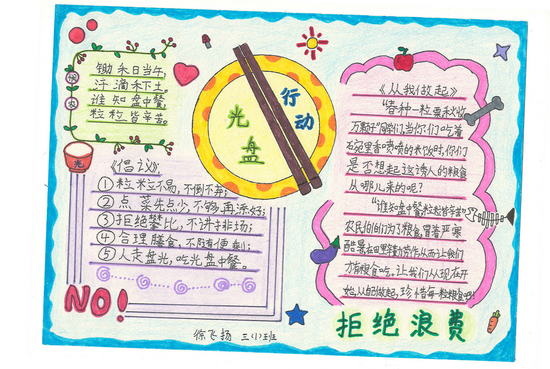 锄禾日当午，
汗滴禾下土。
谁知盘中餐，
粒粒皆辛苦。
光
光盘
行动
《倡议》
①粒粒不易，不倒不弃；
②点菜先点少，不够再添好；
③拒绝攀比，不讲排场；
④合理膳食，不剩便剩；
⑤人走盘光，吃光盘中餐。
NO!
徐飞扬 三(1)班
《从我做起》
“春种一粒粟，秋收
万颗子”同学们，当你们吃着
碗里香喷喷的米饭时，你们
是否想起这诱人的粮食
从哪儿来的呢？
“谁知盘中餐，粒粒皆辛苦”
农民伯伯们为了粮食冒着严寒
酷暑在田里辛勤劳作，从而让我们
才有粮食吃，让我们从现在开
始，从自己做起，珍惜每一粒粮食吧！
拒绝浪费